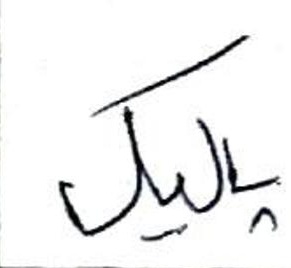 پالیک